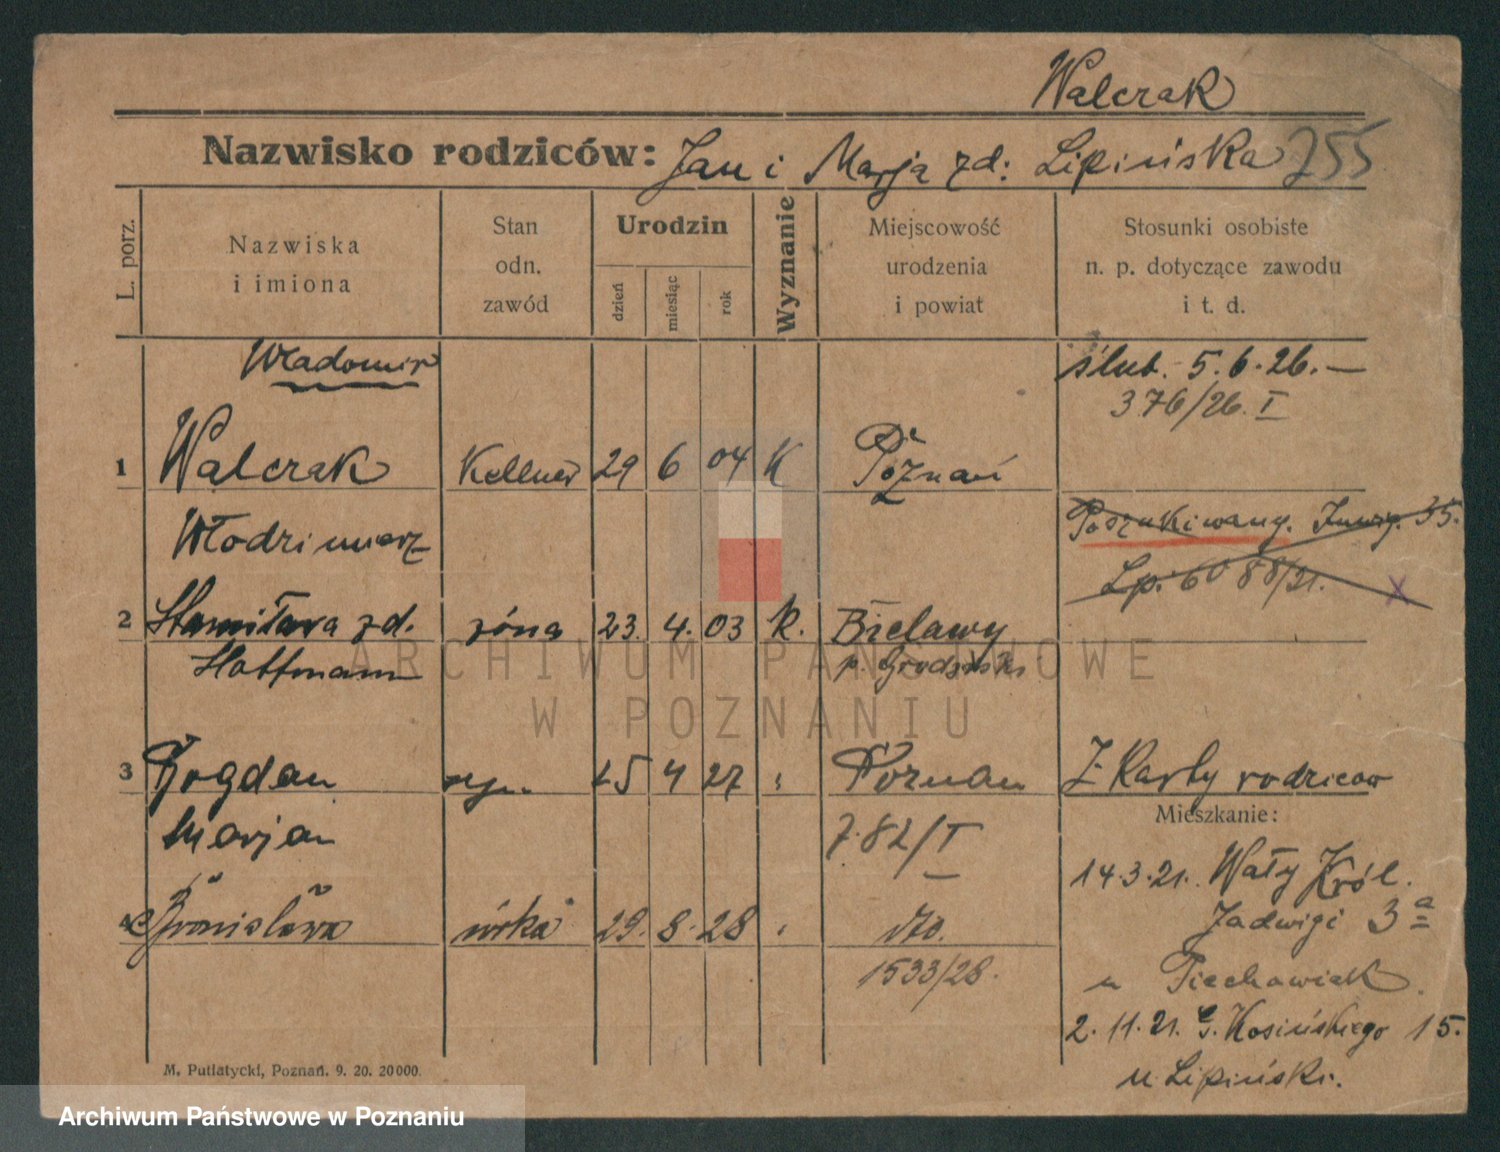 Walczak
Nazwisko rodziców: Jan i Marja zd: Lipińska 255
L. porz.
Nazwiska
i imiona
Stan
odn.
zawód
Urodzin
dzień
miesiąc
rok
Wyznanie
Miejscowość
urodzenia
i powiat
Stosunki osobiste
n. p. dotyczące zawodu
i t. d.
Władomir
ślub. 5.6.26. —
376/26. I
1 Walczak Kellner 29 6 04 K Poznań
Włodzimierz
Poszukiwany. 35.
Lp. 6088/31. X
2 Stanisława zd. żona 23. 4. 03 k. Bielawy
Hoffmann p. Grodzisk
3 Bogdan syn 25 4 27 Poznań Z Karty rodziców
Marjan 782/I
Mieszkanie:
14.3.21. Wały Król.
Jadwigi 3a
4 Bronisława córka 29. 8. 28 dto.
1533/28.
u Piechowiak.
2.11.21. G. Kosińskiego 15.
u Lipiński.
M. Putiatycki, Poznań. 9. 20. 20000.
ARCHIWUM PAŃSTWOWE
W POZNANIU
Archiwum Państwowe w Poznaniu